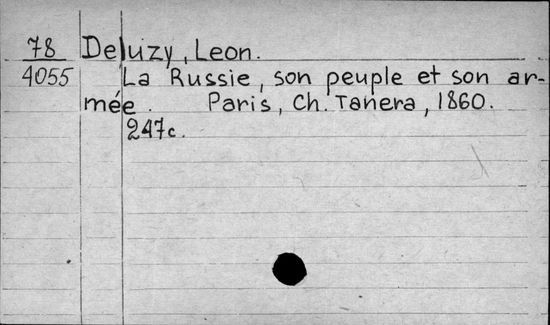 78 Deluzy, Leon.
4055 La Russie, son peuple et son ar-
mée. Paris, Ch. Tanera, 1860.
247c.